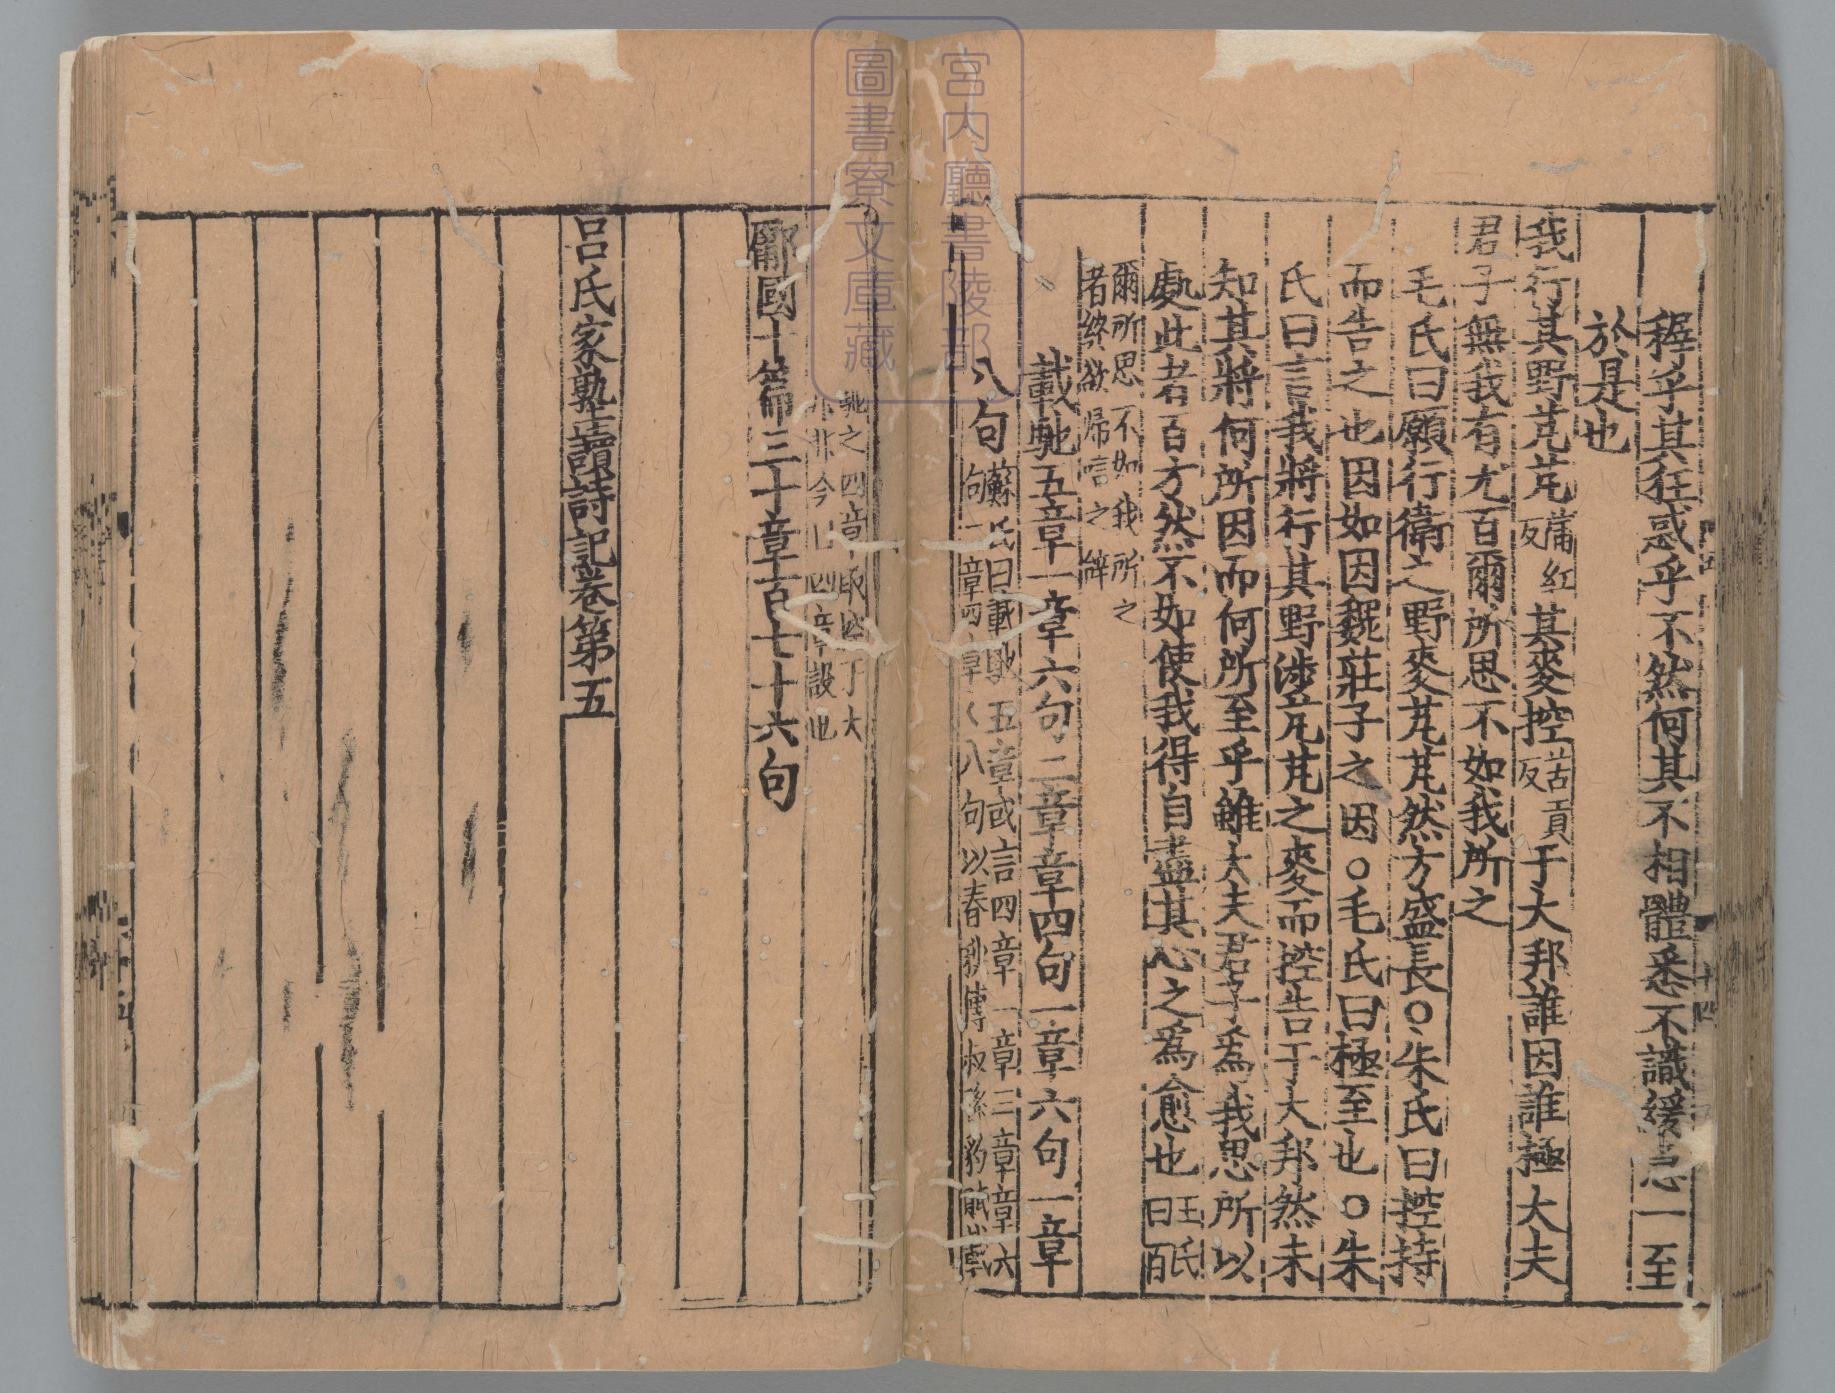 稺乎其狂惑乎不然何其不相體悉不識緩急一至
於是也
我行其野芃芃蒲紅反其麥控苦貢反于大邦誰因誰極大夫
君子無我有尤百爾所思不如我所之
毛氏曰願行衛之野麥芃芃然方盛長○朱氏曰控持
而告之也因如因魏莊子之因○毛氏曰極至也○朱
氏曰言我將行其野涉芃芃之麥而控告于大邦然未
知其將何所因而何所至乎雖大夫君子爲我思所以
處此者百方然不如使我得自盡其心之爲愈也王氏曰百
爾所思不如我所之
者終欲歸唁之辭
載馳五章一章六句二章章四句一章六句一章
八句
蘇氏曰載馳五章或言四章一章三章章六
句二章四章章八句以春秋傳叔孫豹
馳之四章取于大
非今四章也
鄘國十篇三十章百七十六句
呂氏家塾讀詩記卷第五
宮内廳書陵部
圖書寮文庫藏